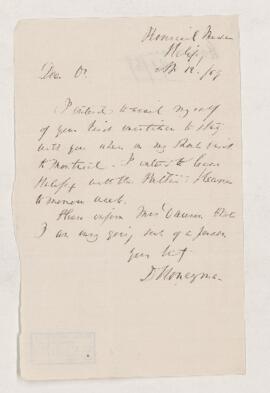 Provincial Museum
Halifax
12 /89
Dear Dr
I intend to avail myself
of your kind invitation to stay
with you when on my short visit
to Montreal. I intend to leave
Halifax with the Steamer
to morrow week.
Please inform Mrs Dawson that
I am easy going sort of a person
Yours truly
D Honeyman